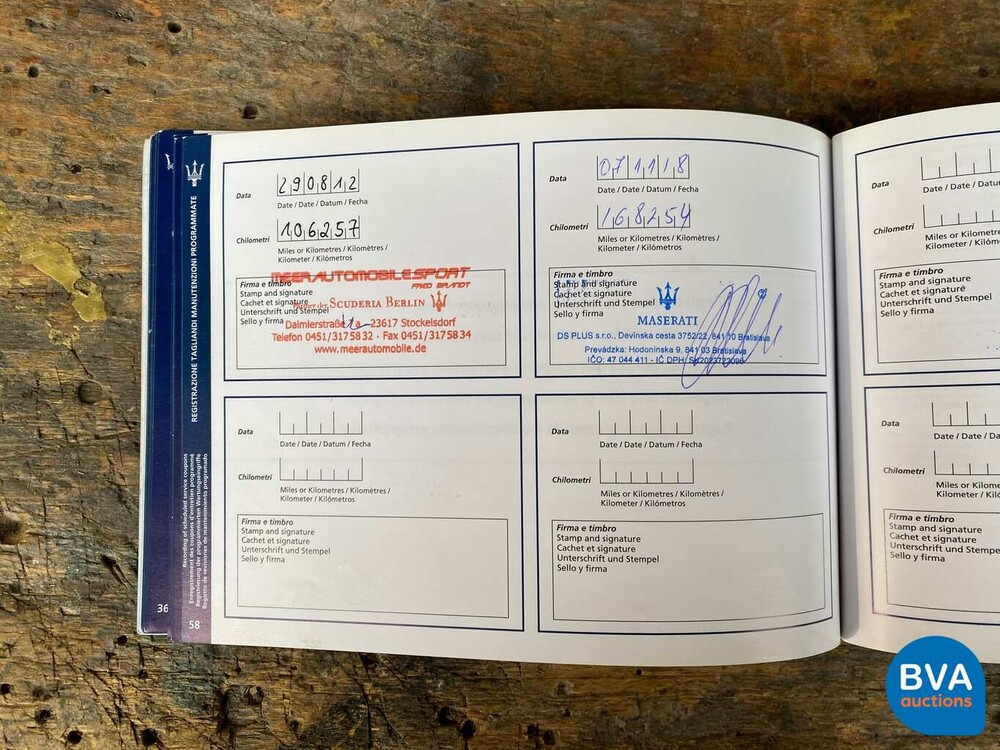 REGISTRAZIONE TAGLIANDI MANUTENZIONI PROGRAMMATE
Recording of scheduled service coupons
Enregistrement des coupons d'entretien programmé
Registrierung der programmierten Wartungseingriffe
Registro de revisiones de mantenimiento programado
36
58
Data
290812
Date / Date / Datum / Fecha
Chilometri
106257
Miles or Kilometres / Kilomètres /
Kilometer / Kilómetros
Firma e timbro
Stamp and signature
Cachet et signature
Unterschrift und Stempel
Sello y firma
MEERAUTOMOBILESPORT
FRED BRANDT
Partner der SCUDERIA BERLIN
Daimlerstraße 23617 Stockelsdorf
Telefon 0451/3175832 · Fax 0451/3175834
www.meerautomobile.de
Data
071118
Date / Date / Datum / Fecha
Chilometri
168254
Miles or Kilometres / Kilomètres /
Kilometer / Kilómetros
Firma e timbro
Stamp and signature
Cachet et signature
Unterschrift und Stempel
Sello y firma
MASERATI
DS PLUS s.r.o., Devínska cesta 3752/22, 841 10 Bratislava
Prevádzka: Hodonínska 9, 841 03 Bratislava
IČO: 47 044 411 - IČ DPH:
Data
Date / Date / Datum / Fecha
Chilometri
Miles or Kilometres / Kilomètres /
Kilometer / Kilómetros
Firma e timbro
Stamp and signature
Cachet et signature
Unterschrift und Stempel
Sello y firma
Data
Date / Date / Datum / Fecha
Chilometri
Miles or Kilometres / Kilomètres /
Kilometer / Kilómetros
Firma e timbro
Stamp and signature
Cachet et signature
Unterschrift und Stempel
Sello y firma
Data
Date / Date / D
Chilometri
Miles or Kilome
Kilometer / Kil
Firma e timbro
Stamp and signature
Cachet et signature
Unterschrift und Stempel
Sello y firma
Data
Date / Date / Da
Chilometri
Miles or Kilome
Kilometer / Kil
Firma e timbro
Stamp and signature
Cachet et signature
Unterschrift und Stempe
Sello y firma
BVA
auctions